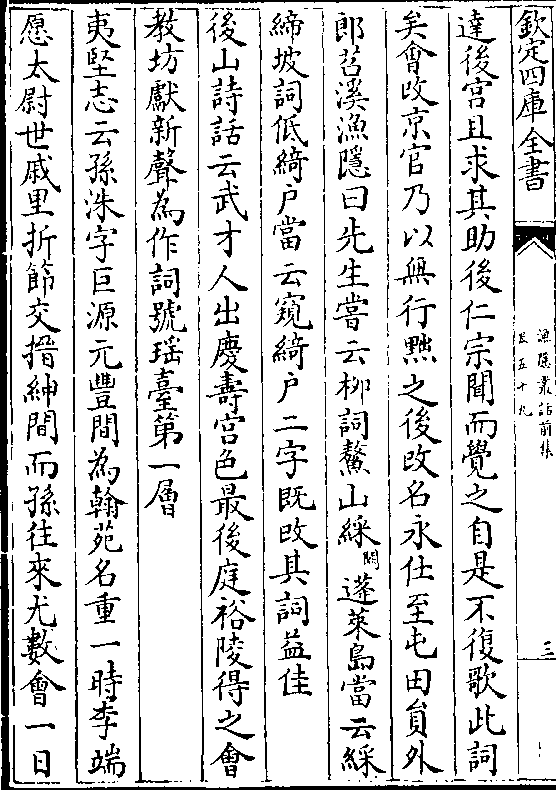 欽定四庫全書
漁隱叢話前集
卷五十九
三
達後宫且求其助後仁宗聞而覺之自是不復歌此詞
矣會改京官乃以無行黜之後改名永仕至屯田員外
郎苕溪漁隱曰先生嘗云栁詞鰲山綵闕蓬萊島當云綵
締坡詞低綺户當云窺綺户二字既改其詞益佳
後山詩話云武才人出慶壽宫色最後庭裕陵得之會
教坊獻新聲為作詞號瑶臺第一層
夷堅志云孫洙字巨源元豐間為翰苑名重一時李端
愿太尉世戚里折節交搢紳間而孫往來尤數會一日